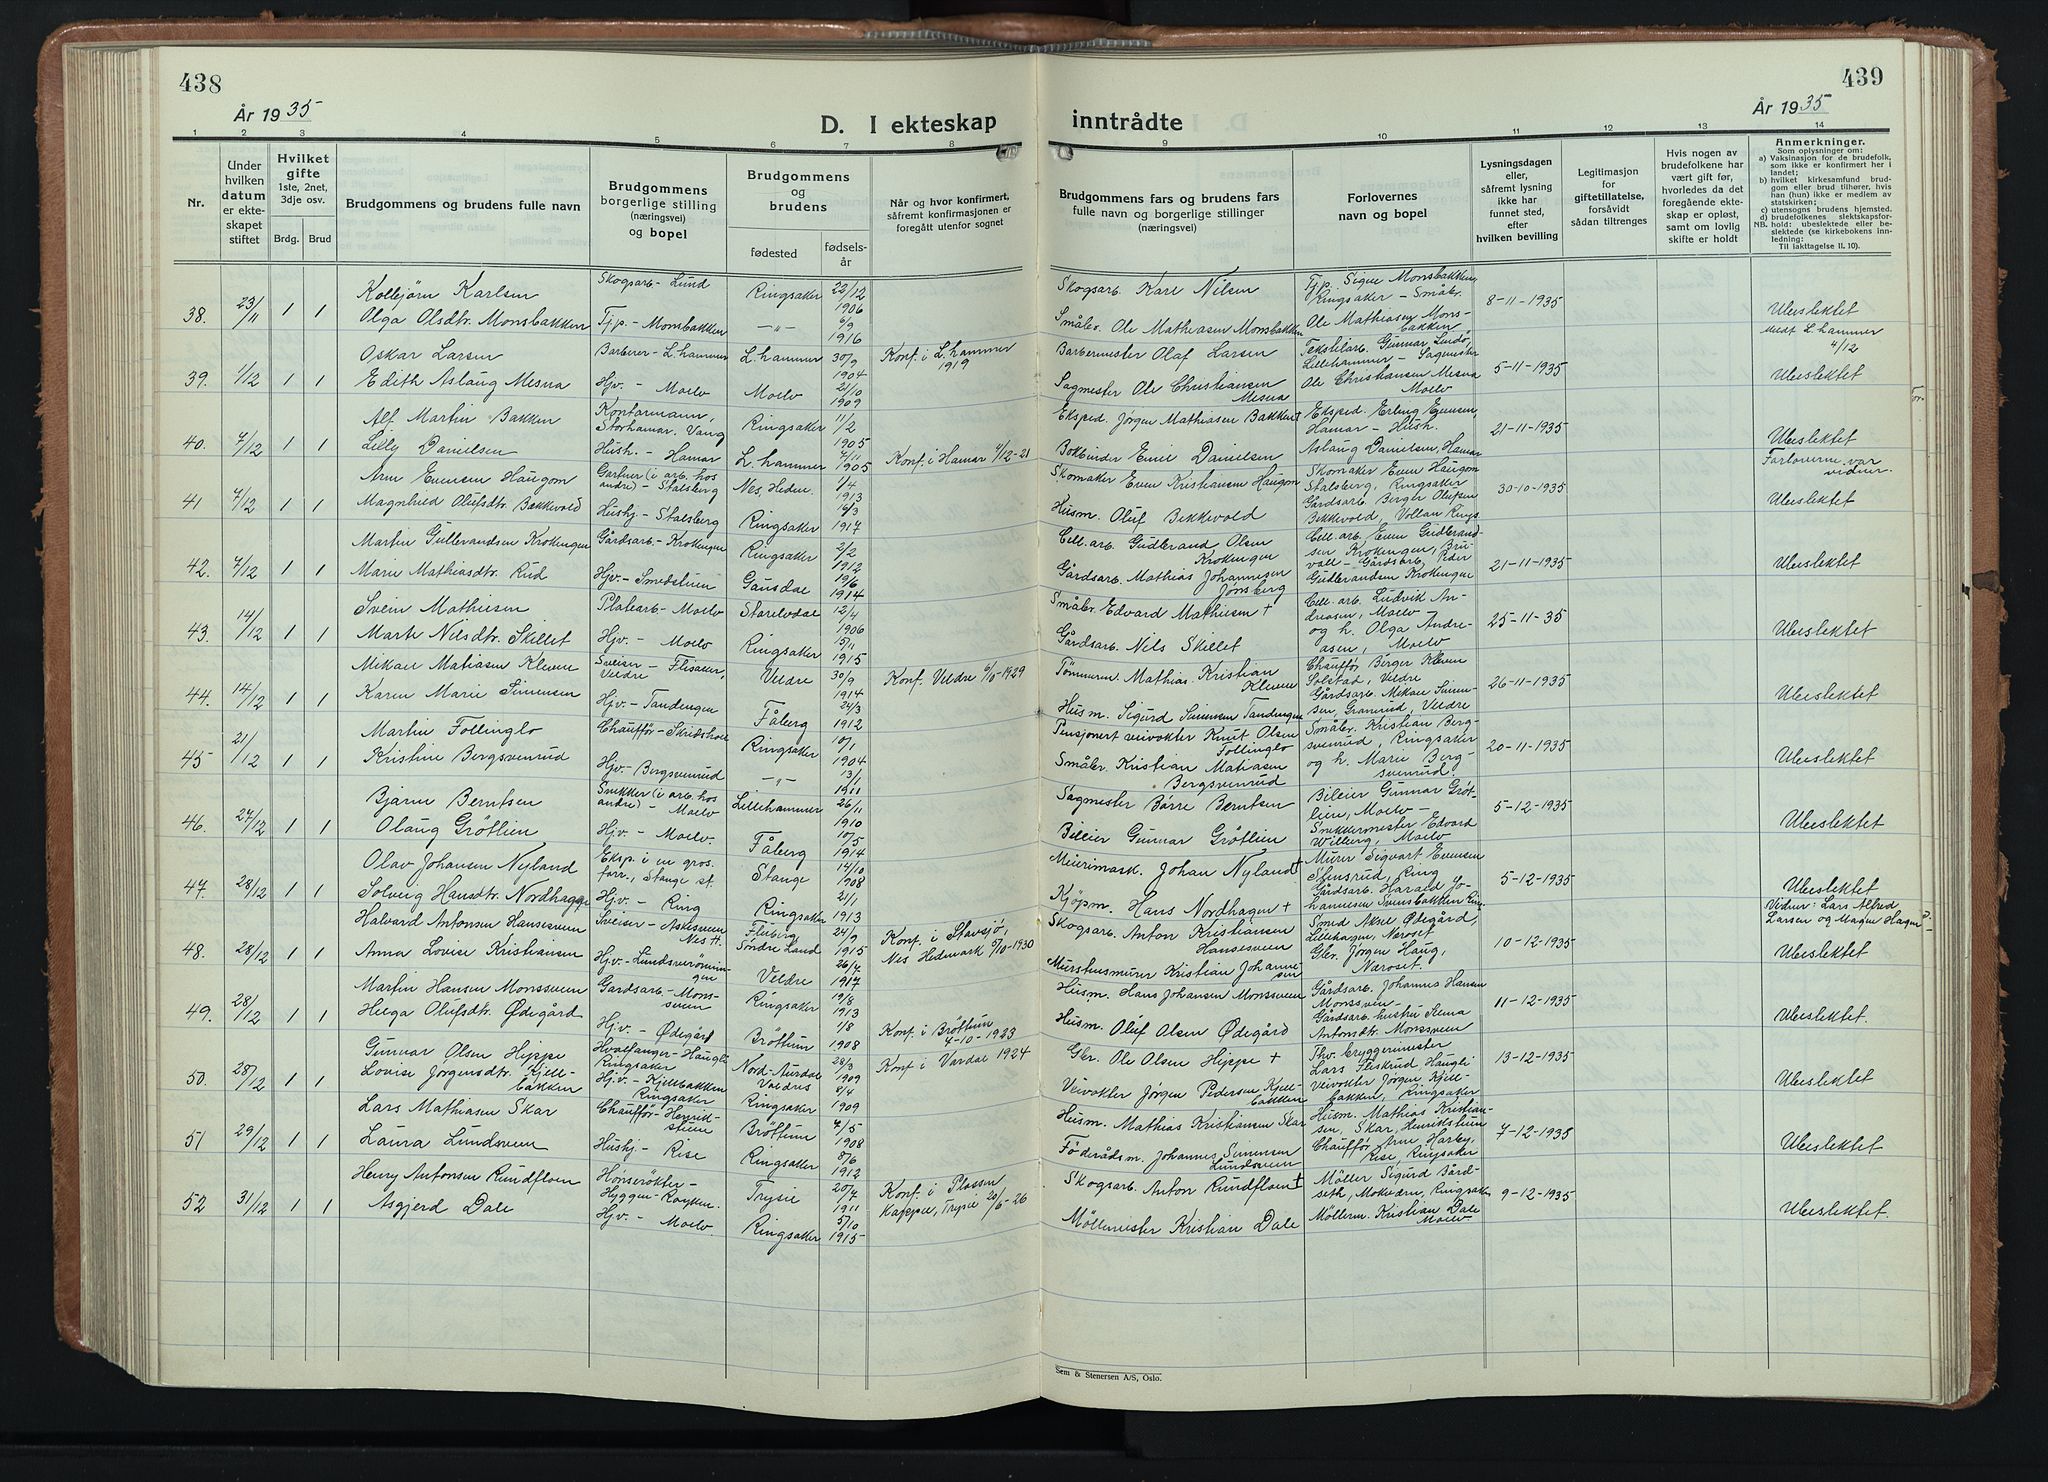 438
År 1935
D. I ekteskap
1 2 3 4 5 6 7 8
Nr.
Under hvilken datum er ekteskapet stiftet
Hvilket gifte 1ste, 2net, 3dje osv.
Brdg. Brud
Brudgommens og brudens fulle navn
Brudgommens borgerlige stilling (næringsvei) og bopel
Brudgommens og brudens
fødested
fødselsår
Når og hvor konfirmert, såfremt konfirmasjonen er foregått utenfor sognet
38. 23/11 1 1 Kolbjörn Karlsen Skogsarb. - Lund Ringsaker 22/12 1906
Olga Olsdtr. Monsbakken Tjp. - Monsbakken -"- 6/9 1916
39. 1/12 1 1 Oskar Larsen Barberer - L.hammer L.hammer 30/9 1904 Konf. i L.hammer 1919
Edith Aslaug Mesna Hjv. - Moelv Moelv 21/10 1909
40. 7/12 1 1 Alf Martin Bakken Kontormann, Storhamar, Vang Ringsaker 11/2 1905
Lilly Danielsen Hush. - Hamar L.hammer 4/11 1905 Konf. i Hamar 4/12-21
41 7/12 1 1 Arne Evensen Haugom Gartner (i arb. hos andre) - Stalsberg Nes, Hedm. 1/4 1913
Magnhild Olufsdtr. Bekkevold Hushj. - Stalsberg Ringsaker 16/3 1917
42. 7/12 1 1 Martin Gulbrandsen Krokengen Gårdsarb. - Krokengen Ringsaker 2/2 1912
Marie Mathiasdtr. Rud Hjv. - Smedstuen Gausdal 19/6 1914
43. 14/12 1 1 Svein Mathiesen Platearb. - Moelv Storelvdal 12/4 1906
Marte Nilsdtr. Skillet Hjv. - Moelv Ringsaker 5/11 1915
44. 14/12 1 1 Mikael Matiasen Kleven Sveiser - Flisaker, Veldre Veldre 30/9 1914 Konf. Veldre 6/10-1929
Karen Marie Simensen Hjv. - Tandengen Fåberg 24/3 1912
45 21/12 1 1 Martin Follinglo Chauffør - Skridshol Ringsaker 10/1 1904
Kristine Bergsvenrud Hjv. - Bergsvenrud -"- 13/1 1911
46. 24/12 1 1 Bjarne Berntsen Snekker (i arb. hos andre) - Moelv Lillehammer 26/11 1910
Olaug Grötlien Hjv. - Moelv. Fåberg 10/5 1914
47. 28/12 1 1 Olav Johansen Nyland Eksp. i en gros. forr., Stange st. Stange 14/10 1908
Solveig Hansdtr. Nordhagen Hjv. - Ring Ringsaker 21/1 1913
48. 28/12 1 1 Halvard Antonsen Hansesveen Sveiser - Nes H. Søndre Land 24/9 1915 Konf. i Stavsjø, Nes Hedmark 5/10-1930
Anna Lovise Kristiansen Hjv. - Veldre 26/4 1917
49. 28/12 1 1 Martin Hansen Monssveen Gardsarb. - Monssveen Ringsaker 19/8 1913
Helga Olufsdtr. Ødegård Hjv. - Ødegård Bröttum 1/8 1908 Konf. i Bröttum 4-10-1923
50. 28/12 1 1 Gunnar Olsen Hippe Hvalfanger - Haugli Ringsaker Nord-Aurdal Valdres 28/3 1909 Konf. i Vardal 1924
Lovise Jörgensdtr. Kjellbakken Hjv. - Kjellbakken Ringsaker Ringsaker 8/4 1909
51 29/12 1 1 Lars Mathiasen Skar Chauffør - Henrikstuen Bröttum 4/5 1908
Laura Lundsveen Hushj. - Rise Ringsaker 8/6 1912
52 31/12 1 1 Henry Antonsen Rundfloen Hönserökter - Hyggen - Røyken. Trysil 20/4 1911 Konf. i Plassen Kappel, Trysil 20/6-26
Asgjerd Dale Hjv. - Moelv. Ringsaker 5/10 1915
439
År 1935
inntrådte
9 10 11 12 13 14
Brudgommens fars og brudens fars fulle navn og borgerlige stillinger (næringsvei)
Forlovernes navn og bopel
Lysningsdagen eller, såfremt lysning ikke har funnet sted, efter hvilken bevilling
Legitimasjon for giftetillatelse, forsåvidt sådan tiltrenges
Hvis nogen av brudefolkene har vært gift før, hvorledes da det foregående ekteskap er opløst, samt om lovlig skifte er holdt
Anmerkninger.
Som oplysninger om:
a) Vaksinasjon for de brudefolk, som ikke er konfirmert her i landet;
b) hvilket kirkesamfund brudgom eller brud tilhører, hvis han (hun) ikke er medlem av statskirken;
c) utensogns brudens hjemsted.
d) brudefolkenes slektskapsforhold: ubeslektede eller beslektede (se kirkebokens innledning:
NB. Til iakttagelse II. 10).
Skogsarb. Karl Nilsen Tjp. Signe Monsbakken, Ringsaker - Småbr. 8-11-1935 Ubeslektet
Småbr. Ole Mathiasen Monsbakken Ole Mathiasen Monsbakken
Barbermester Olaf Larsen Tekstilarb. Gunnar Lindø, Lillehammer - Sagmester 5-11-1935 medt. L.hammer 4/12 Ubeslektet
Sagmester Ole Christiansen Mesna Ole Christiansen Mesna Moelv
Eksped. Jörgen Mathiasen Bakken † Eksped. Erling Evensen, Hamar - Hush. 21-11-1935 Ubeslektet
Bokbinder Emil Danielsen Aslaug Danielsen, Hamar Forloverne var vidner.
Skomaker Even Kristiansen Haugom Skomaker Even Haugom Stalsberg, Ringsaker 30-10-1935 Ubeslektet
Husm. Oluf Bekkevold Gårdsarb. Birger Olufsen Bekkevold, Vollan Rings.
Cell. arb. Gudbrand Olsen Krokengen Cell. arb. Even Gudbrandsen, Krokengen, Bruvoll - Gårdsarb. Peder 21-11-1935 Ubeslektet
Gårdsarb. Mathias Johannesen Jonsberg Gudbrandsen Krokengen
Småbr. Edvard Mathiesen † Cell. arb. Ludvik Andreasen, Moelv 25-11-35 Ubeslektet
Gårdsarb. Nils Skillet og h. Olga Andreasen, Moelv
Tömmerm. Mathias Kristian Kleven Chauffør Birger Kleven Solstad, Veldre 26-11-1935 Ubeslektet
Husm. Sigurd Simensen Tandengen Gårdsarb. Mikael Simensen, Granrud, Veldre
Pensjonert veivokter Knut Olsen Follinglo Småbr. Kristian Bergsvenrud, Ringsaker 20-11-1935 Ubeslektet
Småbr. Kristian Matiasen Bergsvenrud og h. Marie Bergsvenrud.
Sagmester Börre Berntsen Bileier Gunnar Grötlien, Moelv - 5-12-1935 Ubeslektet
Bileier Gunnar Grötlien Snekkermester Edvard Willberg, Moelv
Meierimask. Johan Nyland † Murer Sigvart Evensen Stensrud, Ring 5-12-1935 Ubeslektet
Kjøpm. Hans Nordhagen † Gårdsarb. Harald Johannesen Svensbakken Ring Vidner: Lars Alfred Larsen og Magne Hagen
Skogsarb. Anton Kristiansen Hansesveen Smed Aksel Ødegård, Lillehagen, Næroset 10-12-1935 Ubeslektet
Murer Kristian Johannesen Gbr. Jørgen Haug, Næroset.
Husm. Hans Johansen Monssveen Gårdsarb. Johannes Hansen Monssveen - 11-12-1935 Ubeslektet.
Husm. Oluf Olsen Ødegård Gårdsarb. hustru Antonsdtr. Monssveen
Gbr. Ole Olsen Hippe † Thv. bryggermester Lars Fliskrud Haugli 13-12-1935 Ubeslektet
Veivokter Jørgen Pedersen Kjellbakken Veivokter Jørgen Kjellbakken, Ringsaker
Husm. Mathias Kristiansen Skar Husm. Mathias Kristiansen, Skar, Henrikstuen 7-12-1935 Ubeslektet
Föderådsm. Johannes Simensen Lundsveen Chauffør Arne Harby, Rise, Ringsaker
Skogsarb. Anton Rundfloen † Möller Sigurd Bårdseth, Mokvern, Ringsaker 9-12-1935 Ubeslektet.
Möllemester Kristian Dale Möllerm. Kristian Dale Moelv
Sem & Stenersen A/S, Oslo.